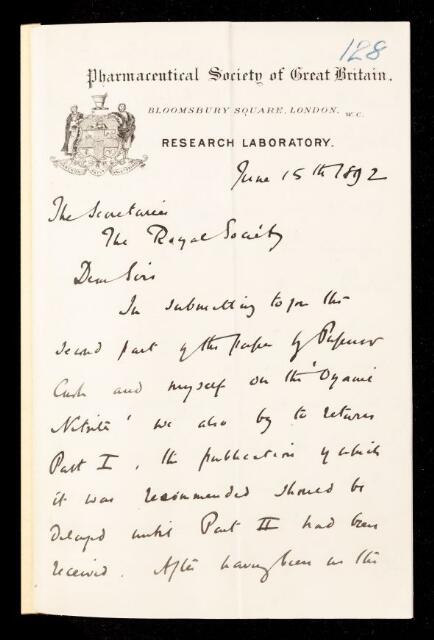 128
Pharmaceutical Society of Great Britain.
BLOOMSBURY SQUARE, LONDON, W.C.
RESEARCH LABORATORY.
June 15th 1892
The Secretaries
The Royal Society
Dear Sirs
In submitting to you the
second part of the paper by Professor
Cash and myself on the 'Organic
Nitrites' we also beg to return
Part I, the publication of which
it was recommended should be
delayed until Part II had been
received. After having been in the